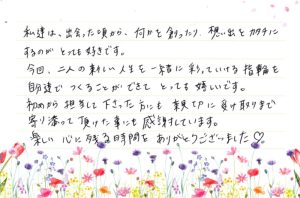 私達は、出会った頃から、何かを創ったり、想い出をカタチに
するのが とっても好きです。
今回、二人の新しい人生を一緒に彩っていける指輪を
自分達で つくることができて とっても嬉しいです。
初めから担当して下さった方にも 受け取りまで
寄り添って頂けた事にも 感謝しています。
楽しい 心に残る時間を ありがとうございました♡